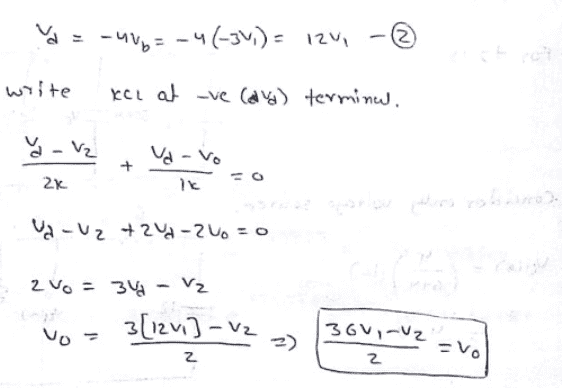 Vd = -4Vb = -4(-3V1) = 12V1 - ②
write KCL at -ve (@Vd) terminal.
(Vd - V2)/2K + (Vd - V0)/1K = 0
Vd - V2 + 2Vd - 2V0 = 0
2V0 = 3Vd - V2
V0 = (3[12V1] - V2)/2 => (36V1 - V2)/2 = V0